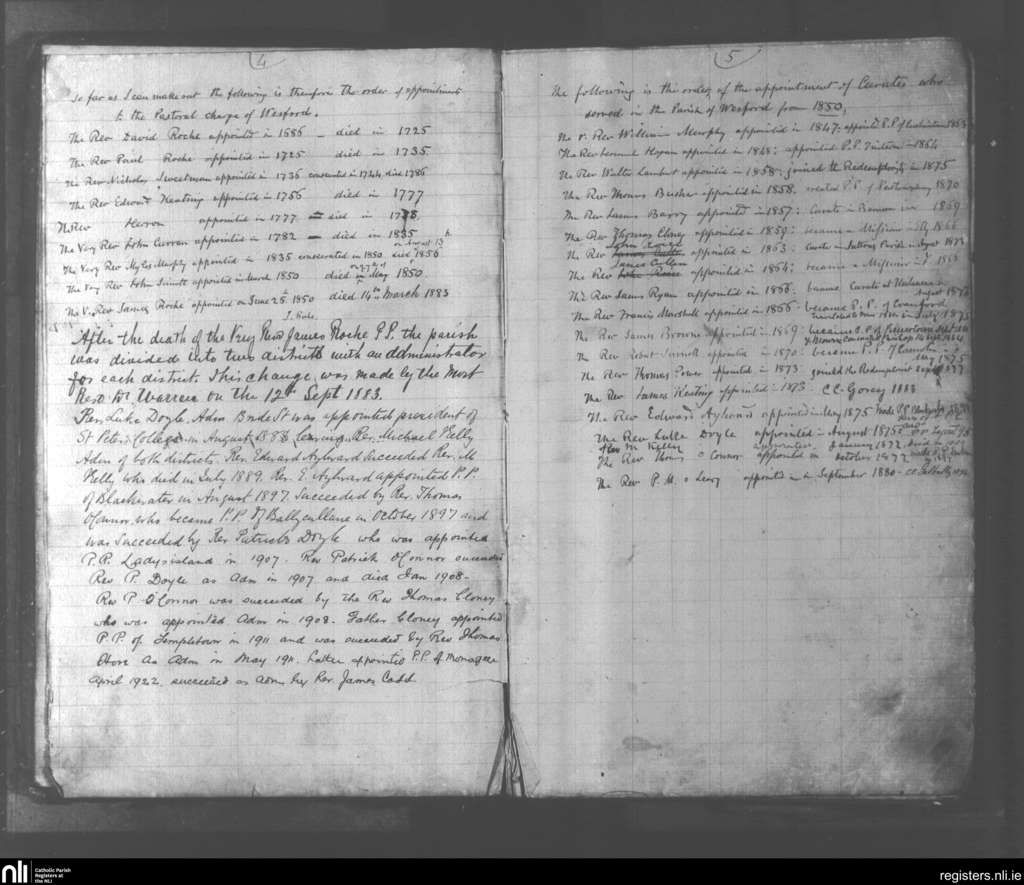 4
so far as I can make out the following is therefore the order of appointments
to the Pastoral charge of Wexford.
The Rev David Roche appointed in 1686 – died in 1725
The Rev Paul Roche appointed in 1725 died in 1735
The Rev Nicholas Sweetman appointed in 1736 consecrated in 1744 died 1786
The Rev Edward Keating appointed in 1756 died in 1777
The Rev Herron appointed in 1777 – died in
The Very Rev John Curran appointed in 1782 – died in 1835
on August 15
The Very Rev Myles Murphy appointed in 1835 consecrated in 1850 died 1856
The Very Rev John Sinnott appointed in March 1850 died May 1850
The V. Rev James Roche appointed on June 25th 1850 died 14th March 1883
After the death of the Very Revd James Roche P.P. the parish
was divided into two districts with an administrator
for each district. This change was made by the Most
Revd Dr Warren on the 12th Sept 1883.
Rev. Luke Doyle Adm Bride St was appointed president of
St Peter's College in August 188 leaving Rev. Michael Kelly
Adm of both districts. Rev. Edward Aylward succeeded Rev. M
Kelly who died in July 1889. Rev. E. Aylward appointed P.P.
of Blackwater in August 1897. Succeeded by Rev. Thomas
O'Connor, who became P.P. of Ballycullane in October 1897 and
was succeeded by Rev Patrick Doyle who was appointed
P.P. Ladysisland in 1907. Rev Patrick O'Connor succeeded
Rev P. Doyle as Adm in 1907 and died Jan 1908.
Rev P. O'Connor was succeeded by the Rev Thomas Cloney
who was appointed Adm in 1908. Father Cloney appointed
P.P. of Templetown in 1911 and was succeeded by Rev Thomas
Hore as Adm in May 1911. Latter appointed P.P. of Monageer
April 1922. succeeded as Adm by Rev. James Codd
5
The following is the order of the appointment of Curates who
served in the Parish of Wexford from 1850,
The V. Rev William Murphy appointed in 1847: appointed P.P. of
The Rev Hogan appointed in 1848: appointed P.P. 1864
The Rev Walter Lambert appointed in 1858: joined the Redemptorists in 1875
The Rev Busher appointed in 1858. created P.P. of 1870
The Rev James Barry appointed in 1857: Curate in Bannow 1859
The Rev Thomas Cloney appointed in 1859: became a Missioner in 1866
The Rev appointed in 1863: Curate in Suttons Parish in August 1873
James Cullen
The Rev appointed in 1864: became a Missioner in 1866
The Rev James Ryan appointed in 1866: became Curate at
The Rev Francis Marshall appointed in 1866: became P.P. of Crawford
in July 1875
The Rev James Browne appointed in 1869: became P.P. of
The Rev Robert Sinnott appointed in 1870: became P.P. of
May 1875
The Rev Thomas Power appointed in 1873 joined the Redemptorist 1877
The Rev James Keating appointed in 1873: C.C. Gorey 1883
The Rev Edward Aylward appointed in May 1875 made P.P.
The Rev Luke Doyle appointed in August 1875
Rev M Kelly January 1877
The Rev Thomas O Connor appointed in October 1877
The Rev P. M. O Leary appointed in September 1880
nli
Catholic Parish
Registers at
the NLI
registers.nli.ie